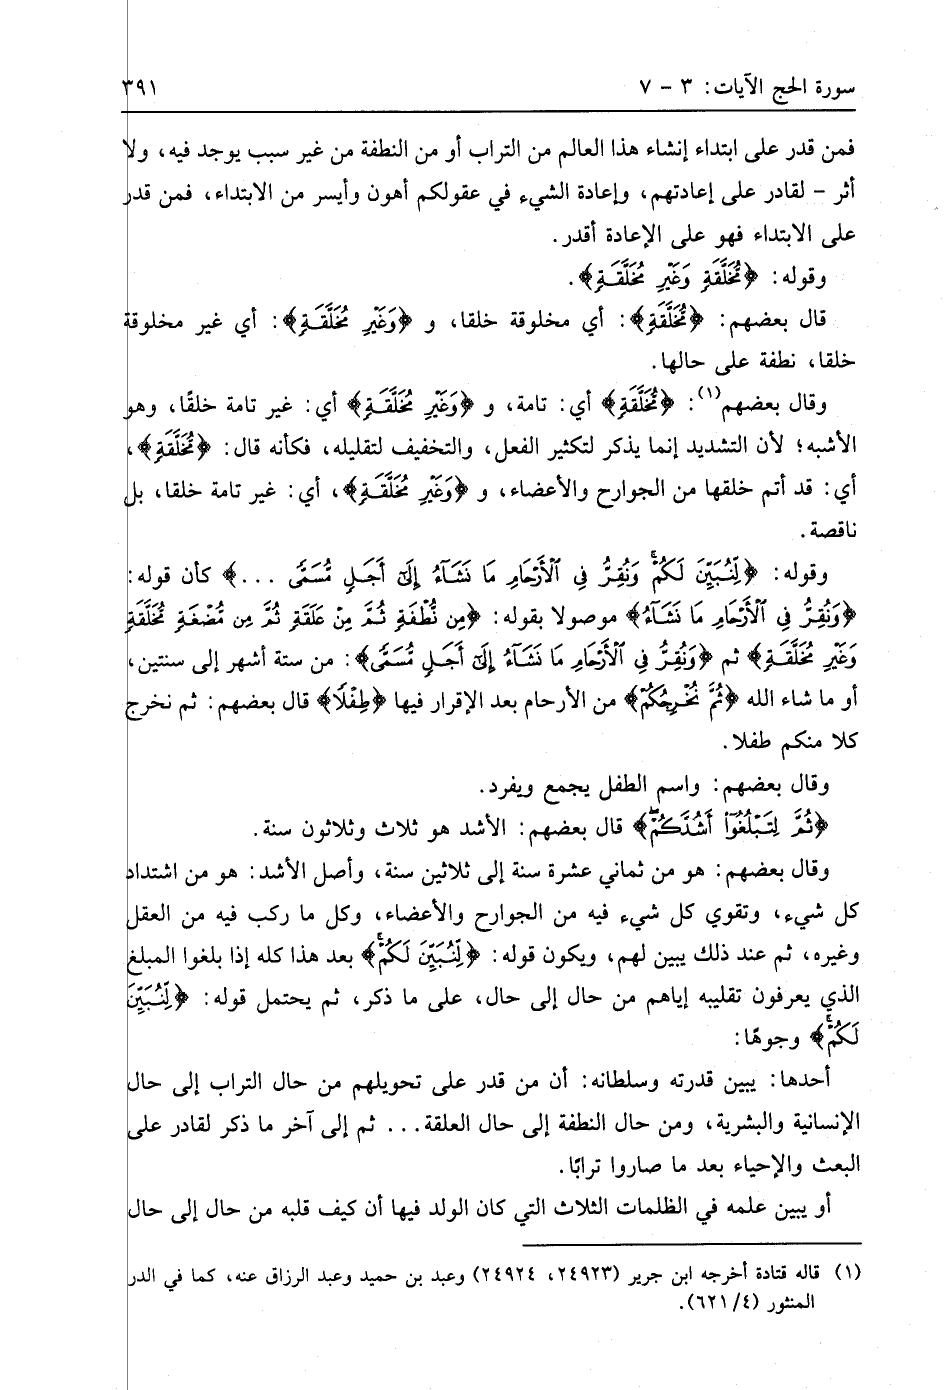 سورة الحج الآيات: ٣ - ٧
٣٩١
فمن قدر على ابتداء إنشاء هذا العالم من التراب أو من النطفة من غير سبب يوجد فيه، ولا
أثر - لقادر على إعادتهم، وإعادة الشيء في عقولكم أهون وأيسر من الابتداء، فمن قدر
على الابتداء فهو على الإعادة أقدر.
وقوله: ﴿مُّخَلَّقَةٖ وَغَيۡرِ مُخَلَّقَةٖ﴾.
قال بعضهم: ﴿مُّخَلَّقَةٖ﴾: أي مخلوقة خلقا، و ﴿وَغَيۡرِ مُخَلَّقَةٖ﴾: أي غير مخلوقة
خلقا، نطفة على حالها.
وقال بعضهم(١): ﴿مُّخَلَّقَةٖ﴾ أي: تامة، و ﴿وَغَيۡرِ مُخَلَّقَةٖ﴾ أي: غير تامة خلقًا، وهو
الأشبه؛ لأن التشديد إنما يذكر لتكثير الفعل، والتخفيف لتقليله، فكأنه قال: ﴿مُّخَلَّقَةٖ﴾،
أي: قد أتم خلقها من الجوارح والأعضاء، و ﴿وَغَيۡرِ مُخَلَّقَةٖ﴾، أي: غير تامة خلقا، بل
ناقصة.
وقوله: ﴿لِّنُبَيِّنَ لَكُمۡۚ وَنُقِرُّ فِي ٱلۡأَرۡحَامِ مَا نَشَآءُ إِلَىٰٓ أَجَلٖ مُّسَمّٗى ...﴾ كأن قوله:
﴿وَنُقِرُّ فِي ٱلۡأَرۡحَامِ مَا نَشَآءُ﴾ موصولا بقوله: ﴿مِن نُّطۡفَةٖ ثُمَّ مِنۡ عَلَقَةٖ ثُمَّ مِن مُّضۡغَةٖ مُّخَلَّقَةٖ
وَغَيۡرِ مُخَلَّقَةٖ﴾ ثم ﴿وَنُقِرُّ فِي ٱلۡأَرۡحَامِ مَا نَشَآءُ إِلَىٰٓ أَجَلٖ مُّسَمّٗى﴾: من ستة أشهر إلى سنتين،
أو ما شاء الله ﴿ثُمَّ نُخۡرِجُكُمۡ﴾ من الأرحام بعد الإقرار فيها ﴿طِفۡلٗا﴾ قال بعضهم: ثم نخرج
كلا منكم طفلا.
وقال بعضهم: واسم الطفل يجمع ويفرد.
﴿ثُمَّ لِتَبۡلُغُوٓاْ أَشُدَّكُمۡۖ﴾ قال بعضهم: الأشد هو ثلاث وثلاثون سنة.
وقال بعضهم: هو من ثماني عشرة سنة إلى ثلاثين سنة، وأصل الأشد: هو من اشتداد
كل شيء، وتقوي كل شيء فيه من الجوارح والأعضاء، وكل ما ركب فيه من العقل
وغيره، ثم عند ذلك يبين لهم، ويكون قوله: ﴿لِّنُبَيِّنَ لَكُمۡۚ﴾ بعد هذا كله إذا بلغوا المبلغ
الذي يعرفون تقليبه إياهم من حال إلى حال، على ما ذكر، ثم يحتمل قوله: ﴿لِّنُبَيِّنَ
لَكُمۡۚ﴾ وجوهًا:
أحدها: يبين قدرته وسلطانه: أن من قدر على تحويلهم من حال التراب إلى حال
الإنسانية والبشرية، ومن حال النطفة إلى حال العلقة... ثم إلى آخر ما ذكر لقادر على
البعث والإحياء بعد ما صاروا ترابًا.
أو يبين علمه في الظلمات الثلاث التي كان الولد فيها أن كيف قلبه من حال إلى حال
(١) قاله قتادة أخرجه ابن جرير (٢٤٩٢٣، ٢٤٩٢٤) وعبد بن حميد وعبد الرزاق عنه، كما في الدر
المنثور (٤/ ٦٢١).